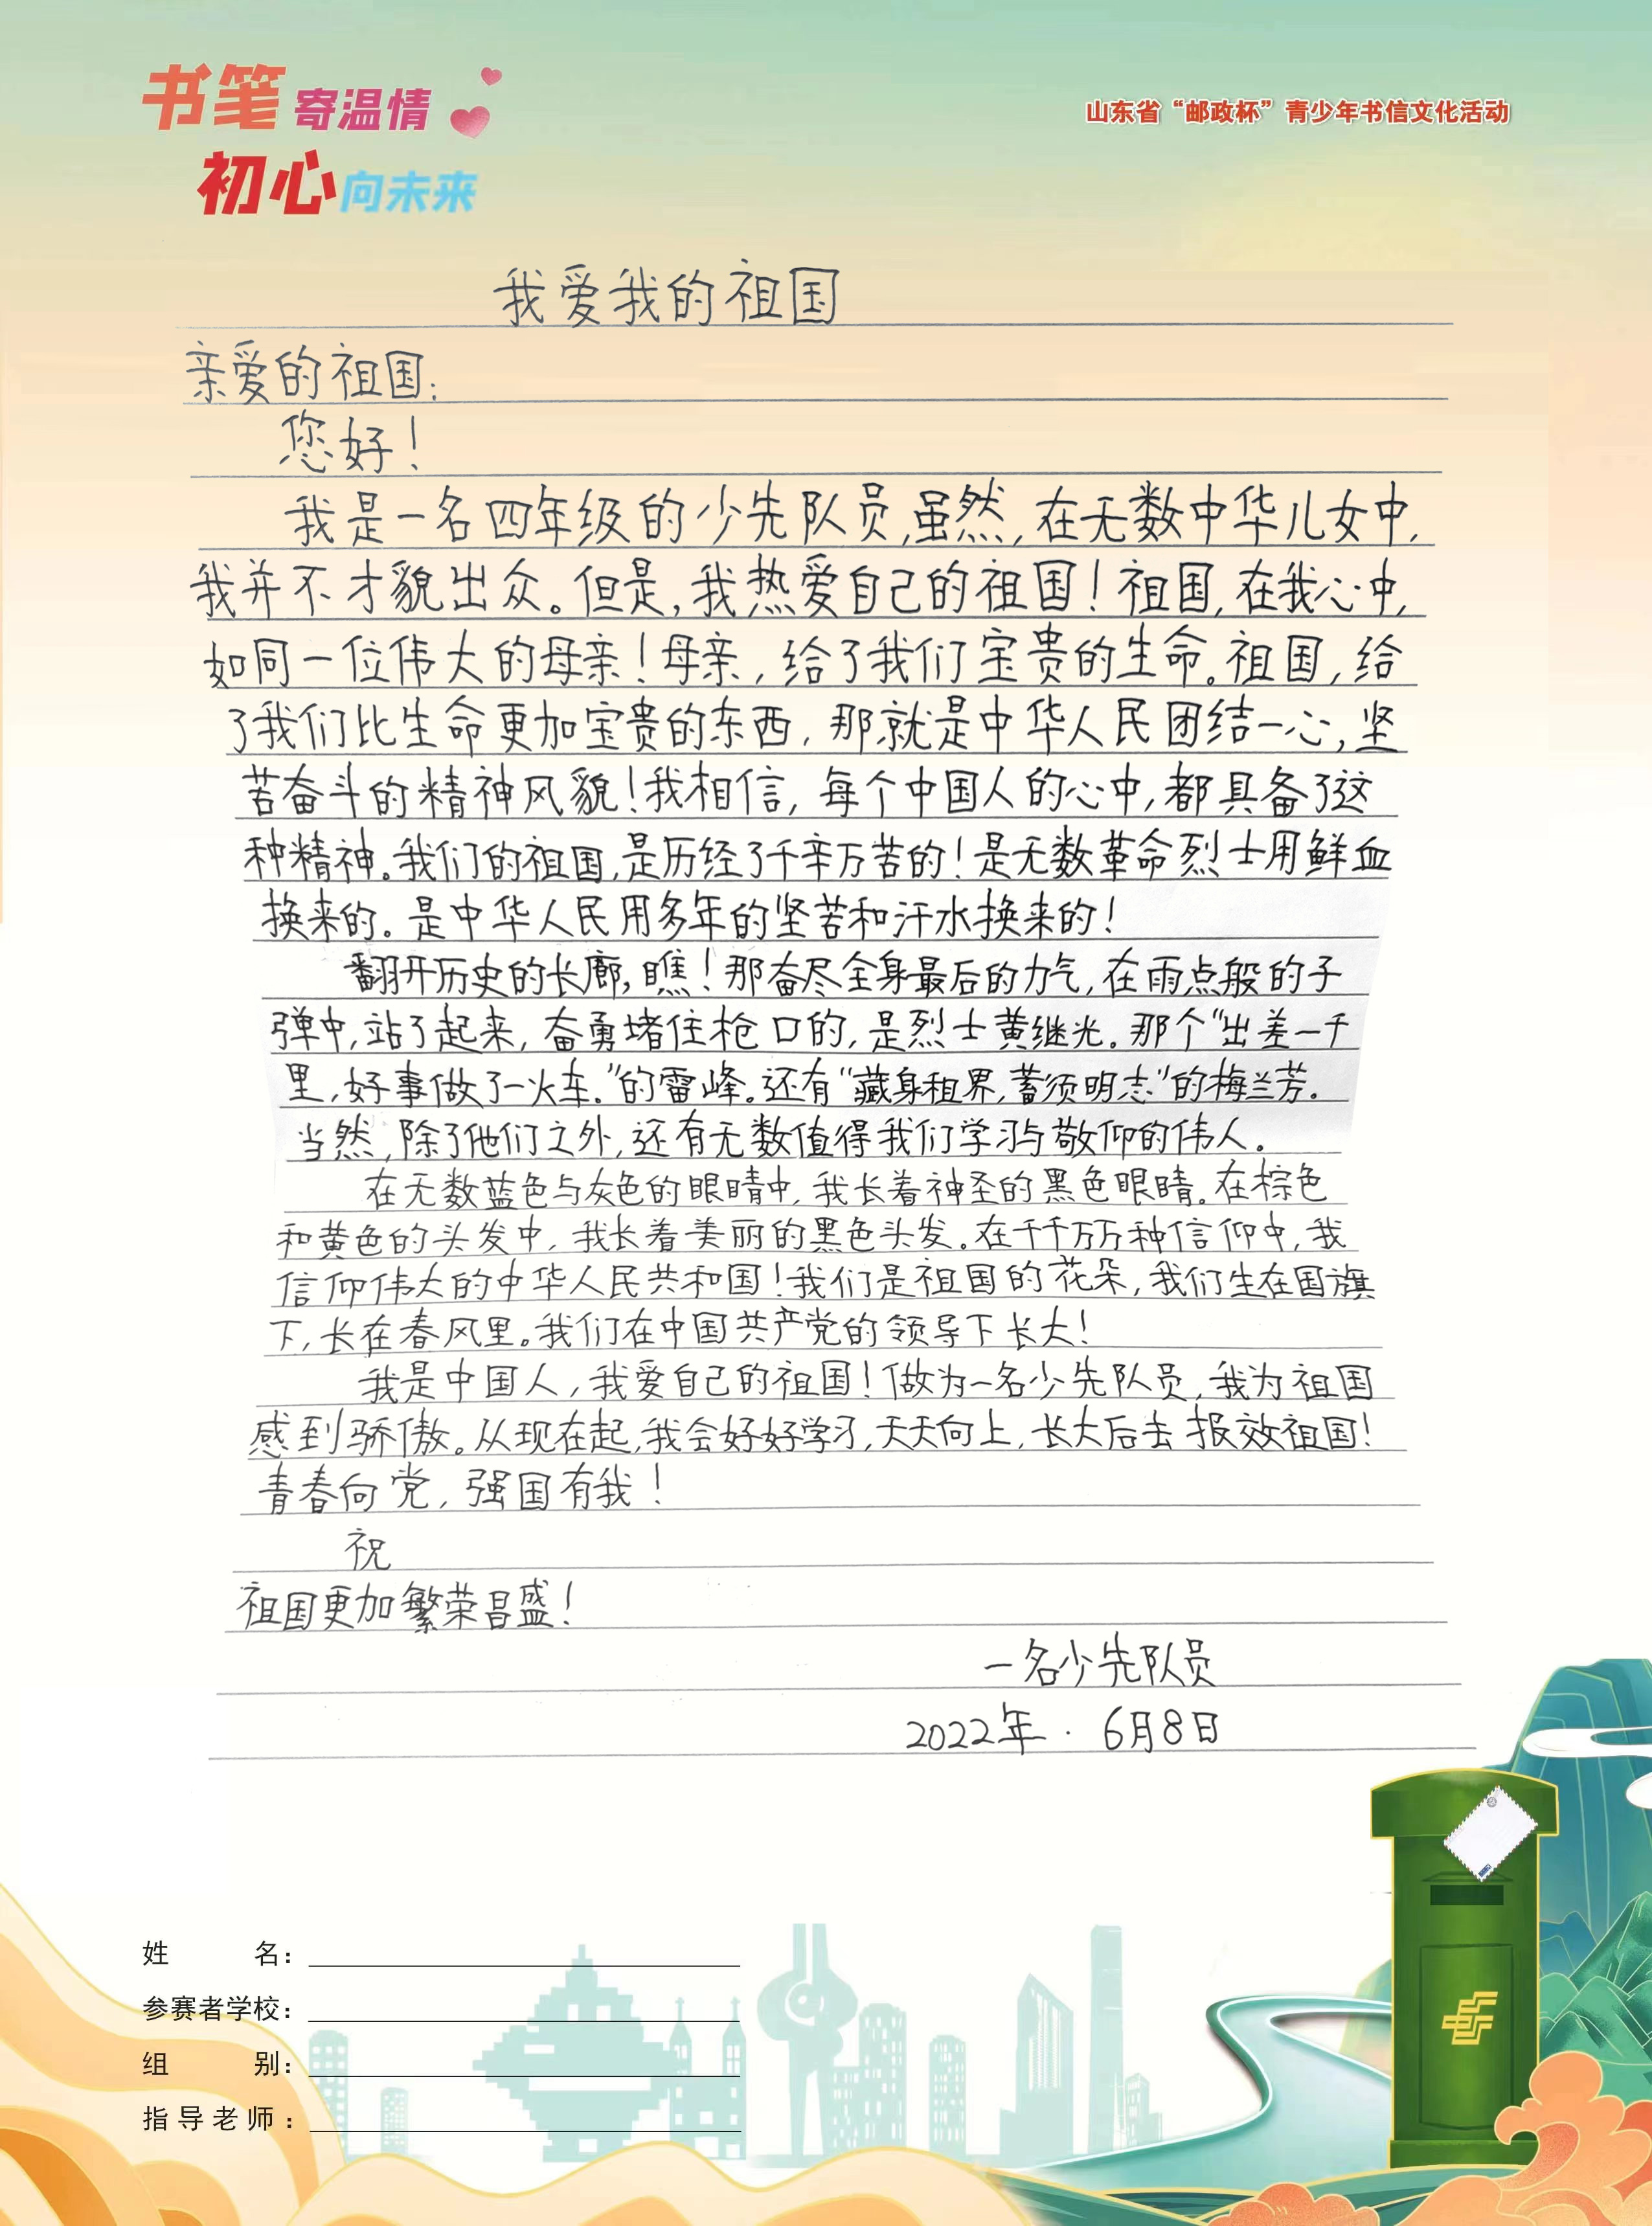 书笔寄温情
初心向未来
山东省“邮政杯”青少年书信文化活动
我爱我的祖国
亲爱的祖国:
您好!
我是一名四年级的少先队员,虽然,在无数中华儿女中,
我并不才貌出众。但是,我热爱自己的祖国!祖国,在我心中,
如同一位伟大的母亲!母亲,给了我们宝贵的生命。祖国,给
了我们比生命更加宝贵的东西,那就是中华人民团结一心,坚
苦奋斗的精神风貌!我相信,每个中国人的心中,都具备了这
种精神。我们的祖国,是历经了千辛万苦的!是无数革命烈士用鲜血
换来的。是中华人民用多年的坚苦和汗水换来的!
翻开历史的长廊,瞧!那奋尽全身最后的力气,在雨点般的子
弹中,站了起来,奋勇堵住枪口的,是烈士黄继光。那个“出差一千
里,好事做了一火车.”的雷峰。还有“藏身租界,蓄须明志”的梅兰芳。
当然,除了他们之外,还有无数值得我们学习与敬仰的伟人。
在无数蓝色与灰色的眼睛中,我长着神圣的黑色眼睛。在棕色
和黄色的头发中,我长着美丽的黑色头发。在千千万万种信仰中,我
信仰伟大的中华人民共和国!我们是祖国的花朵,我们生在国旗
下,长在春风里。我们在中国共产党的领导下长大!
我是中国人,我爱自己的祖国!做为一名少先队员,我为祖国
感到骄傲。从现在起,我会好好学习,天天向上,长大后去报效祖国!
青春向党,强国有我!
祝
祖国更加繁荣昌盛!
一名少先队员
2022年·6月8日
姓 名:
参赛者学校:
组 别:
指导老师: